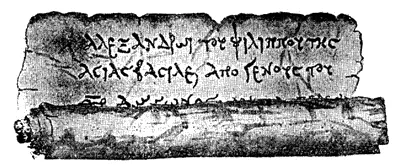 ΑΛΕΞΑΝΔΡωι ΤΟΥ ΦΙΛΙΠΠΟΥ ΤΗς
ΑςΙΑς ΒΑςΙΛΕΙ ΑΠΟ ΓΕΝΟΥς ΤΟΥ